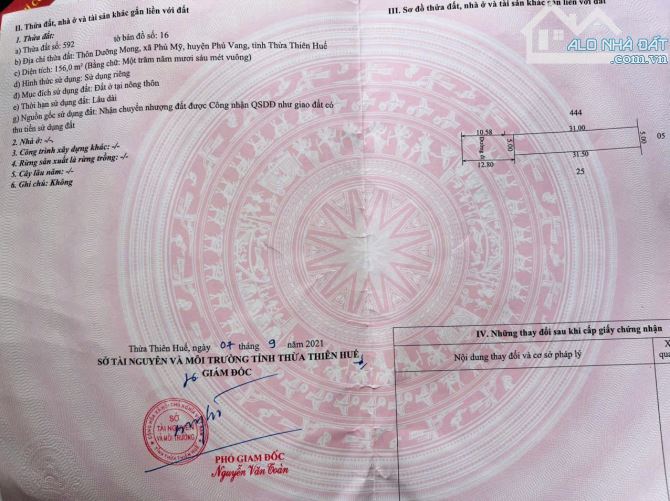 II. Thửa đất, nhà ở và tài sản khác gắn liền với đất
1. Thửa đất:
a) Thửa đất số: 592 tờ bản đồ số: 16
b) Địa chỉ thửa đất: Thôn Dưỡng Mong, xã Phú Mỹ, huyện Phú Vang, tỉnh Thừa Thiên Huế
c) Diện tích: 156,0 m² (Bằng chữ: Một trăm năm mươi sáu mét vuông)
d) Hình thức sử dụng: Sử dụng riêng
đ) Mục đích sử dụng đất: Đất ở tại nông thôn
e) Thời hạn sử dụng đất: Lâu dài
g) Nguồn gốc sử dụng đất: Nhận chuyển nhượng đất được Công nhận QSDĐ như giao đất có
thu tiền sử dụng đất
2. Nhà ở: -/-
3. Công trình xây dựng khác: -/-
4. Rừng sản xuất là rừng trồng: -/-
5. Cây lâu năm: -/-
6. Ghi chú: Không
Thừa Thiên Huế, ngày 07 tháng 9 năm 2021
SỞ TÀI NGUYÊN VÀ MÔI TRƯỜNG TỈNH THỪA THIÊN HUẾ
GIÁM ĐỐC
SỞ
TÀI NGUYÊN
VÀ MÔI TRƯỜNG
PHÓ GIÁM ĐỐC
Nguyễn Văn Toàn
III. Sơ đồ thửa đất, nhà ở và tài sản khác gắn liền với đất
ALO NHÀ ĐẤT
444
10.58
31.00
Đường đi
5.00
5.00
05
12.80
31.50
25
IV. Những thay đổi sau khi cấp giấy chứng nhận
Nội dung thay đổi và cơ sở pháp lý